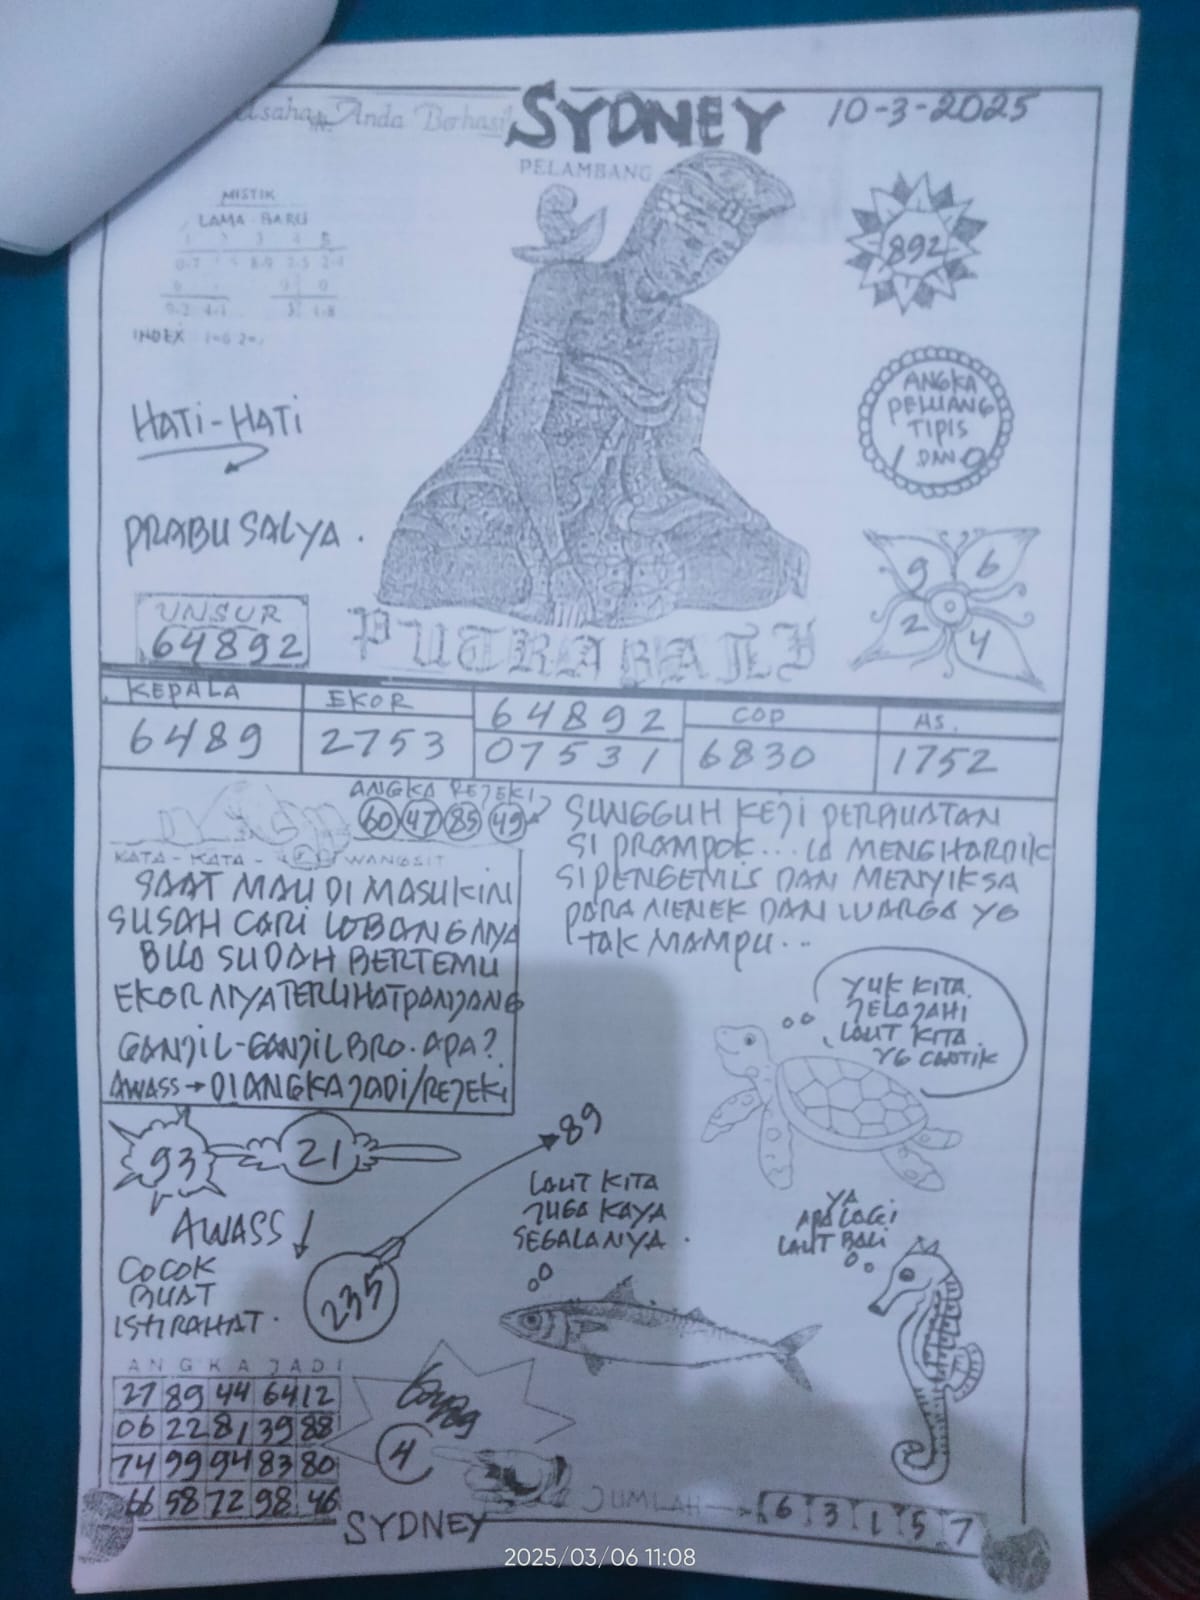 Anda Berhasil
SYDNEY
10-3-2025
PELAMBANG
MISTIK
LAMA BARU
892
INDEX
HATI-HATI
ANGKA
PELUANG
TIPIS
1 DAN 0
PRABU SALYA.
9 6
2 4
UNSUR
64892
PUTRA BALI
KEPALA
6489
EKOR
2753
64892
07531
COP
6830
AS.
1752
ANGKA REJEKI
60 47 85 49
KATA-KATA-WANGSIT
SAAT MAU DI MASUKIN
SUSAH CARI LOBANGNYA
BILA SUDAH BERTEMU
EKORNYA TERLIHAT PANJANG
GANJIL-GANJIL BRO. APA?
AWASS → DI ANGKA JADI/REJEKI
SUNGGUH KEJI PERBUATAN
SI PRAMPOK... IA MENGHARDIK
SI PENGEMIS DAN MENYIKSA
PARA NENEK DAN WARGA YG
TAK MAMPU...
YUK KITA
JELAJAHI
LAUT KITA
YG CANTIK
93 21
89
AWASS
COCOK
BUAT
ISTIRAHAT.
235
LAUT KITA
JUGA KAYA
SEGALANYA.
YA
APA LAGI
LAUT BALI
ANGKA JADI
27 89 44 64 12
06 22 81 39 88
74 99 94 83 80
66 58 72 98 46
4
JUMLAH → 6 3 1 5 7
SYDNEY
2025/03/06 11:08